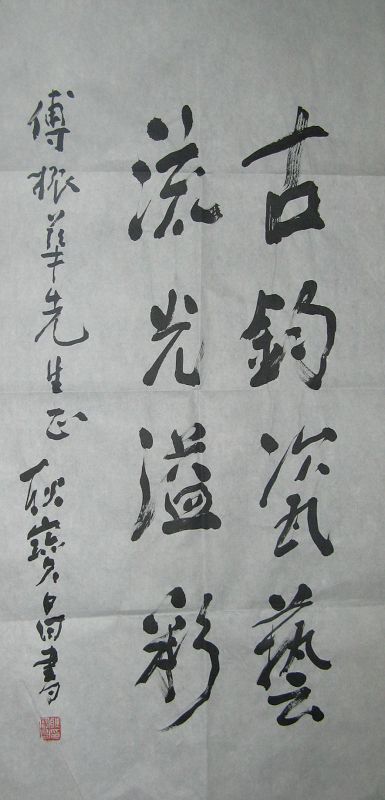 古鈞瓷藝
流光溢彩
傅振華先生正
耿寶昌書